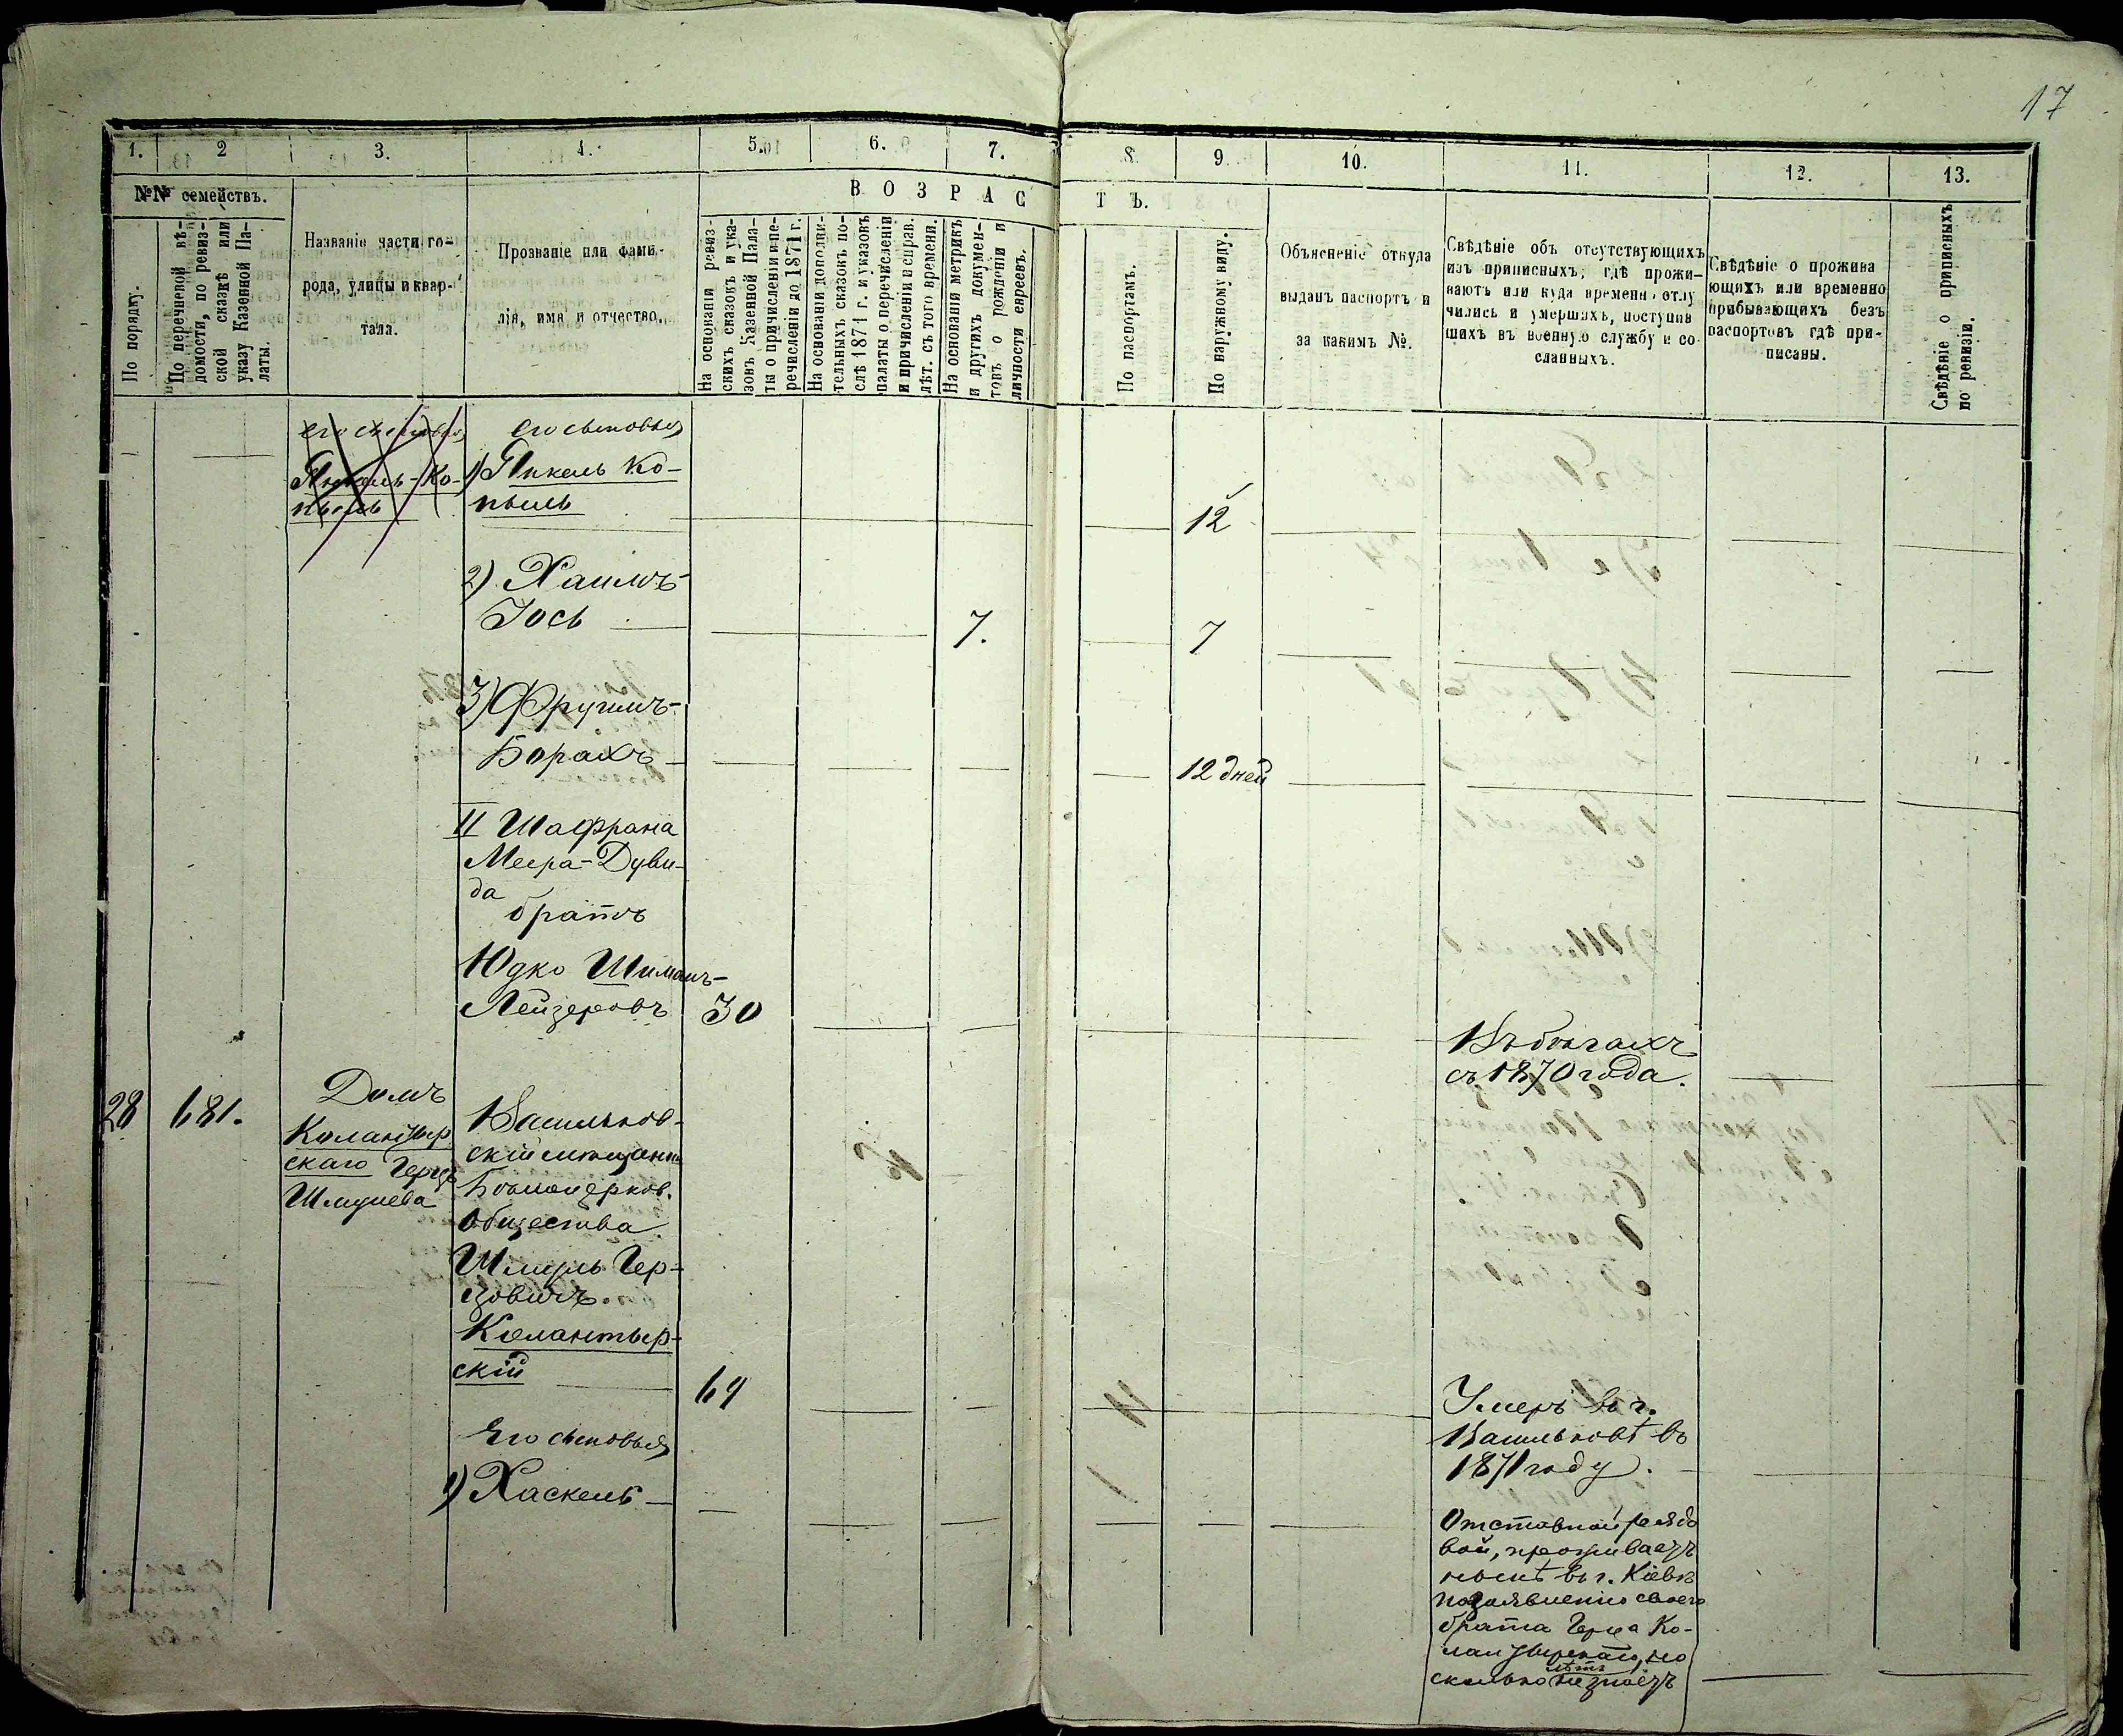 17
1.
2
3.
4.
5.
6.
7.
8.
9.
10.
11.
12.
13.
№№ семействъ.
По порядку.
По перечневой вѣ-
домости, по ревиз-
ской сказкѣ или
указу Казенной Па-
латы.
Названіе части го-
рода, улицы и квар-
тала.
Прозваніе или фами-
лія, имя и отчество.
ВОЗРАС
ТЪ.
На основаніи ревиз-
скихъ сказокъ и ука-
зовъ Казенной Пала-
ты о причисленіи и пе-
речисленіи до 1871 г.
На основаніи дополни-
тельныхъ сказокъ по-
слѣ 1871 г. и указовъ
палаты о перечисленіи
и причисленіи и справ.
лѣт. съ того времени.
На основаніи метрикъ
и другихъ докумен-
товъ о рожденіи и
личности евреевъ.
По паспортамъ.
По наружному виду.
Объясненіе откуда
выданъ паспортъ и
за какимъ №.
Свѣдѣніе объ отсутствующихъ
изъ приписныхъ, гдѣ прожи-
ваютъ или куда времени отлу
чились и умершихъ, поступив
шихъ въ военную службу и со
сланныхъ.
Свѣдѣніе о прожива
ющихъ или временно
прибывающихъ безъ
паспортовъ гдѣ при-
писаны.
Свѣдѣніе о приписныхъ
по ревизіи.
его сыновья
Янкель-Ко-
пыль
его сыновья
1) Янкель Ко-
пыль
12
2) Хаимъ-
Іось
7.
7
3) Фруимъ-
Борахъ
12 дней
II Шафрана
Меера-Дуви-
да
братъ
Юдко Шиманъ-
Лейзеровъ
30
Въ бѣгахъ
съ 1870 года.
28
681.
Домъ
Колантыр
скаго Герца
Шмулева
Васильков-
скій мѣщанин
Бѣлоцерков.
Общества
Шмуль Гер-
цовичъ
Колантыр-
скій
69
Умеръ въ г.
Васильковѣ въ
1871 году.
Его сыновья
1) Хаскель
Отставной рядо
вой, проживаетъ
нынѣ въ г. Кіевѣ
по заявленію своего
брата Герца Ко-
лантырскаго, но
сколько лѣтъ не знаетъ